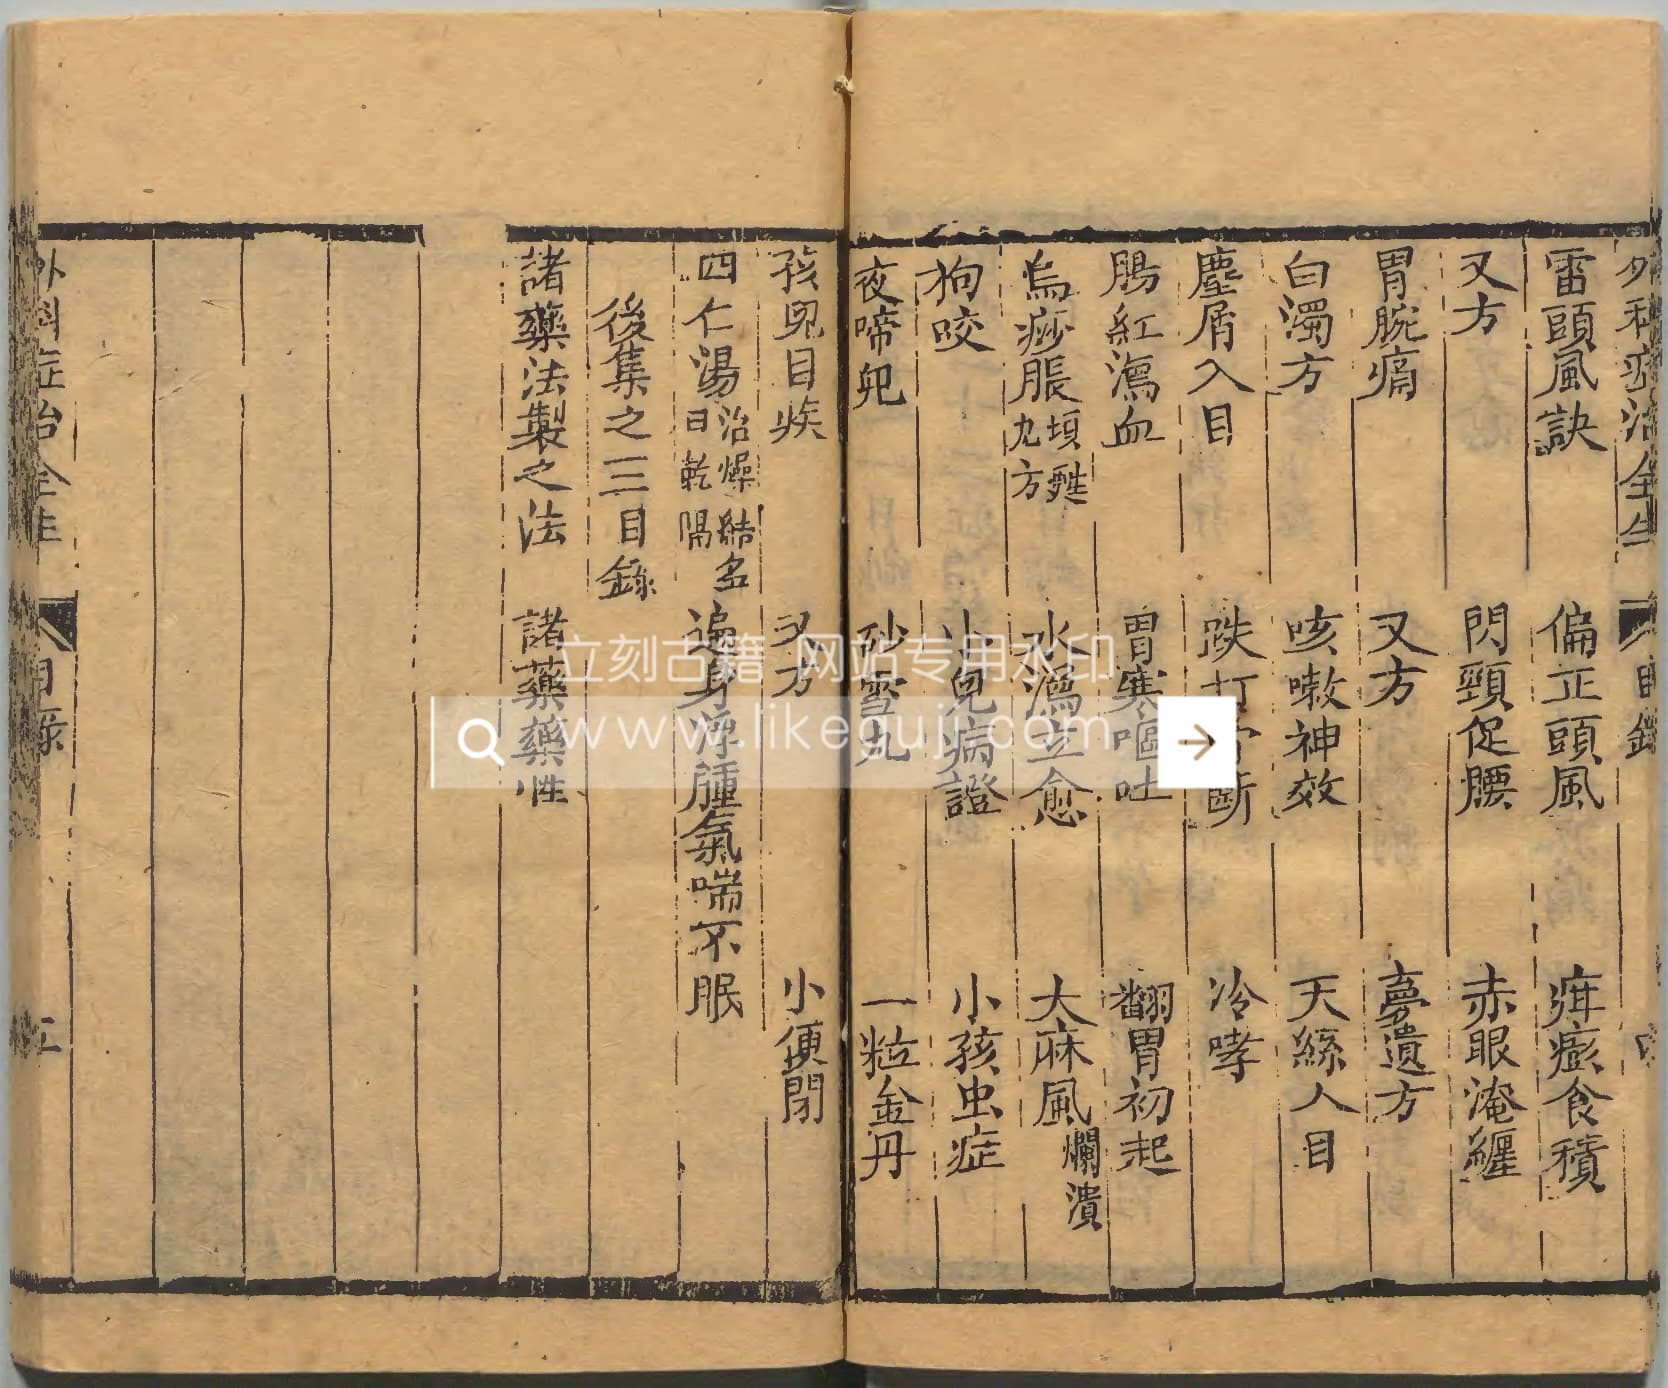 外科症治全生 目錄
雷頭風訣 偏正頭風 疳癥食積
又方 閃頸促腰 赤眼淹纏
胃脘痛 又方 夢遺方
白濁方 咳嗽神效 天絲人目
塵屑入目 跌打骨斷 冷哮
腸紅瀉血 胃寒嘔吐 翻胃初起
烏痧脹 頃甦九方 水瀉立愈 大麻風 爛潰
狗咬 小兒病證 小孩虫症
夜啼兒 砂雪丸 一粒金丹
孩兒目疾 又方 小便閉
四仁湯 治燥結名曰乾隔 遍身浮腫氣喘不眠
後集之三目錄
諸藥法製之法 諸藥藥性
外科症治全生 目錄 五
立刻古籍 网站专用水印
www.likeguji.com